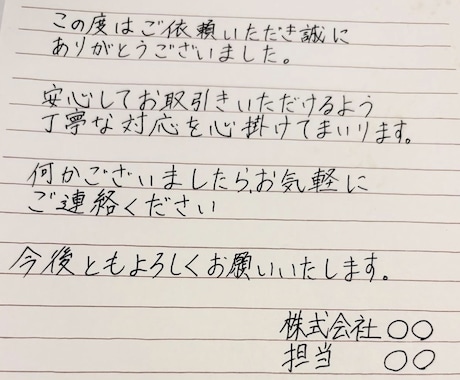 この度はご依頼いただき誠に
ありがとうございました。
安心してお取引きいただけるよう
丁寧な対応を心掛けてまいります。
何かございましたら、お気軽に
ご連絡ください
今後ともよろしくお願いいたします。
株式会社〇〇
担当 〇〇